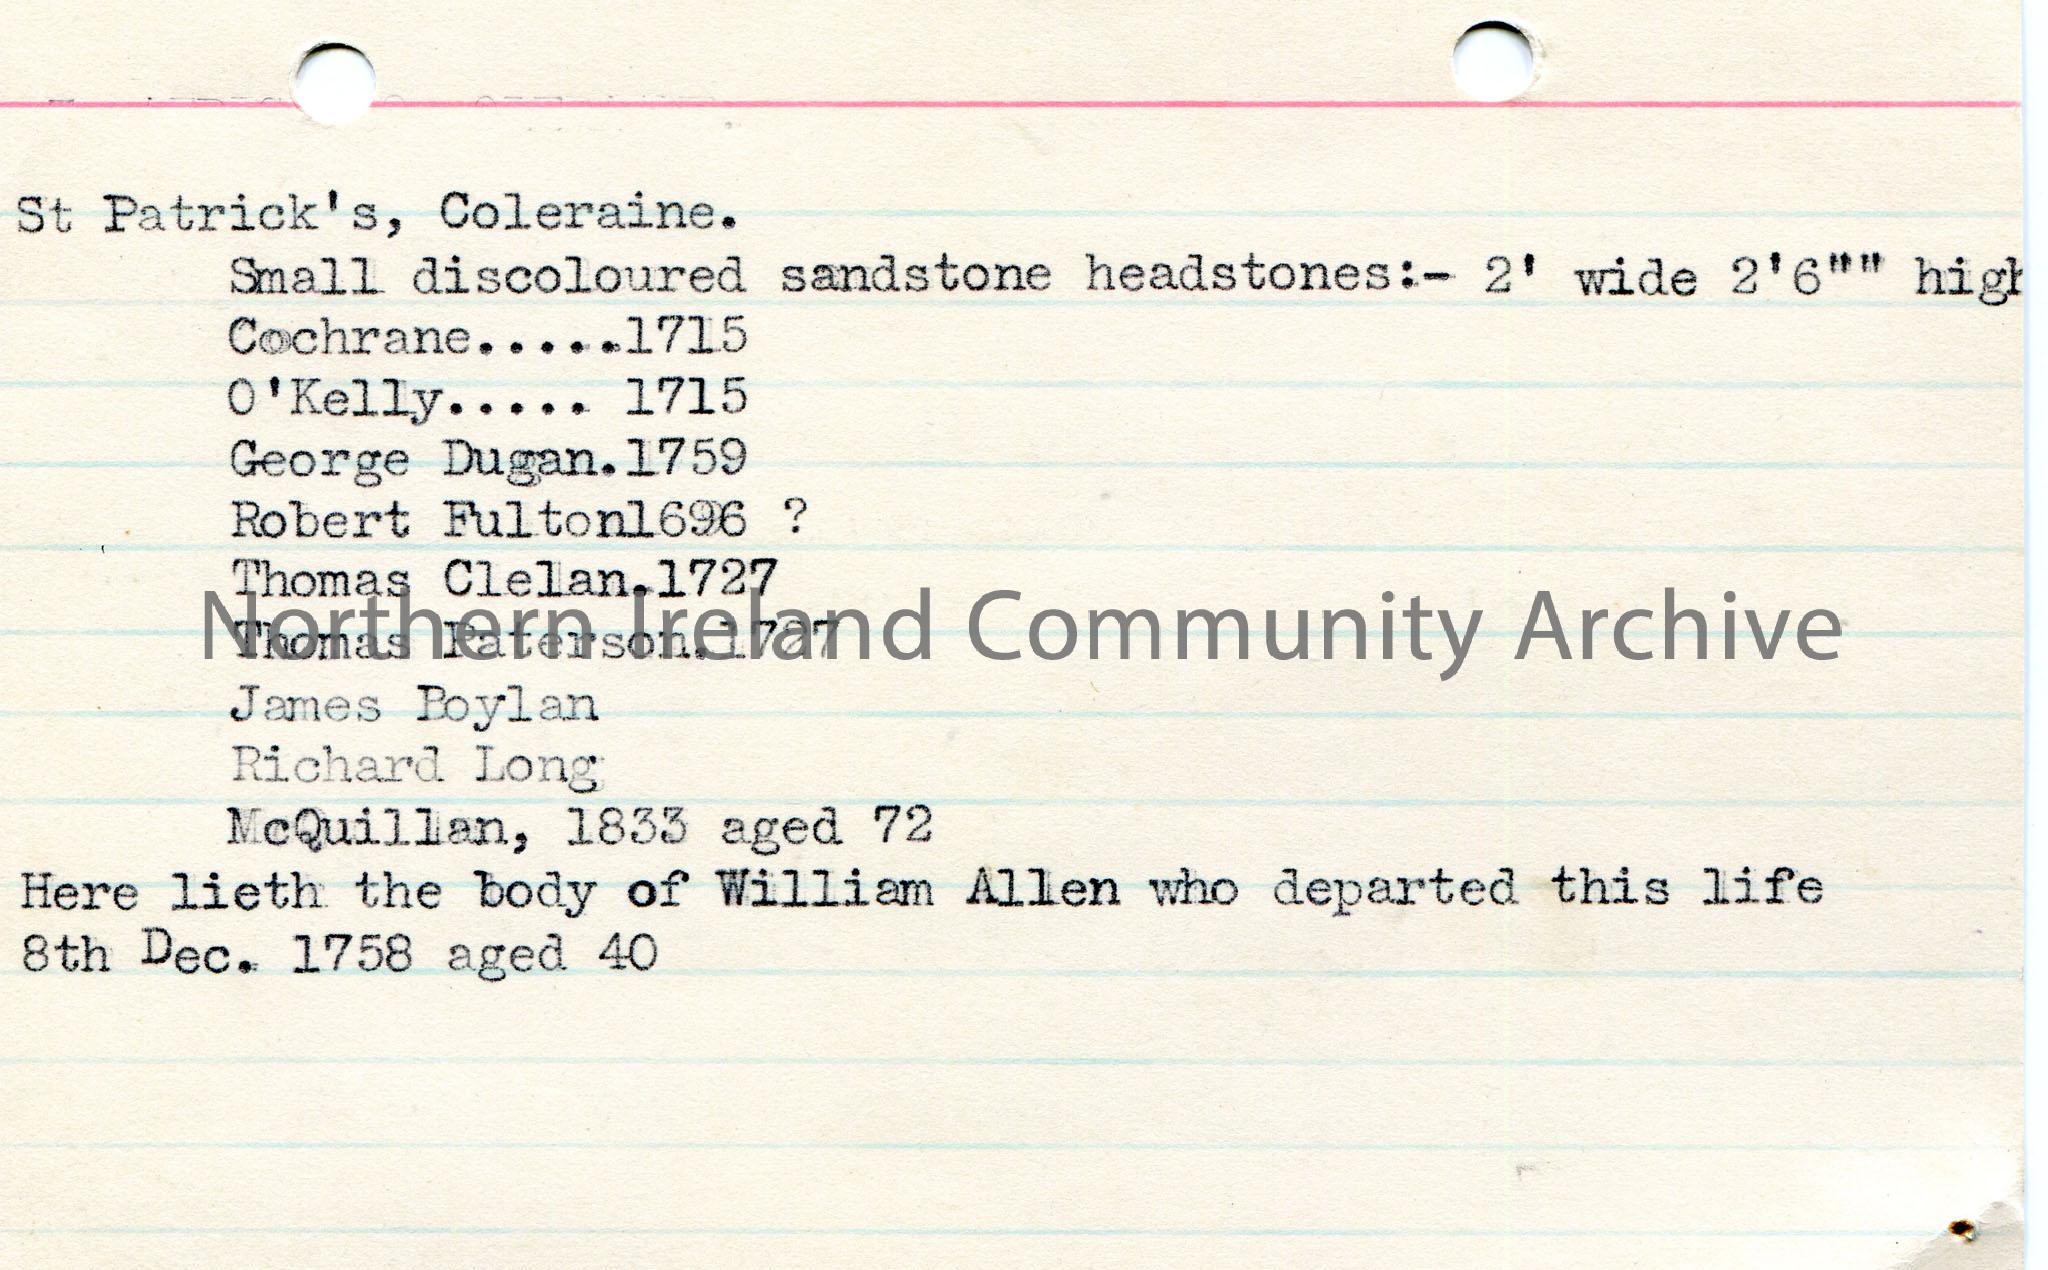 St Patrick's, Coleraine.
Small discoloured sandstone headstones:- 2' wide 2'6"" high
Cochrane.....1715
O'Kelly..... 1715
George Dugan.1759
Robert Fulton1696 ?
Thomas Clelan.1727
Thomas Paterson.1727
Northern Ireland Community Archive
James Boylan
Richard Long
McQuillan, 1833 aged 72
Here lieth the body of William Allen who departed this life
8th Dec. 1758 aged 40